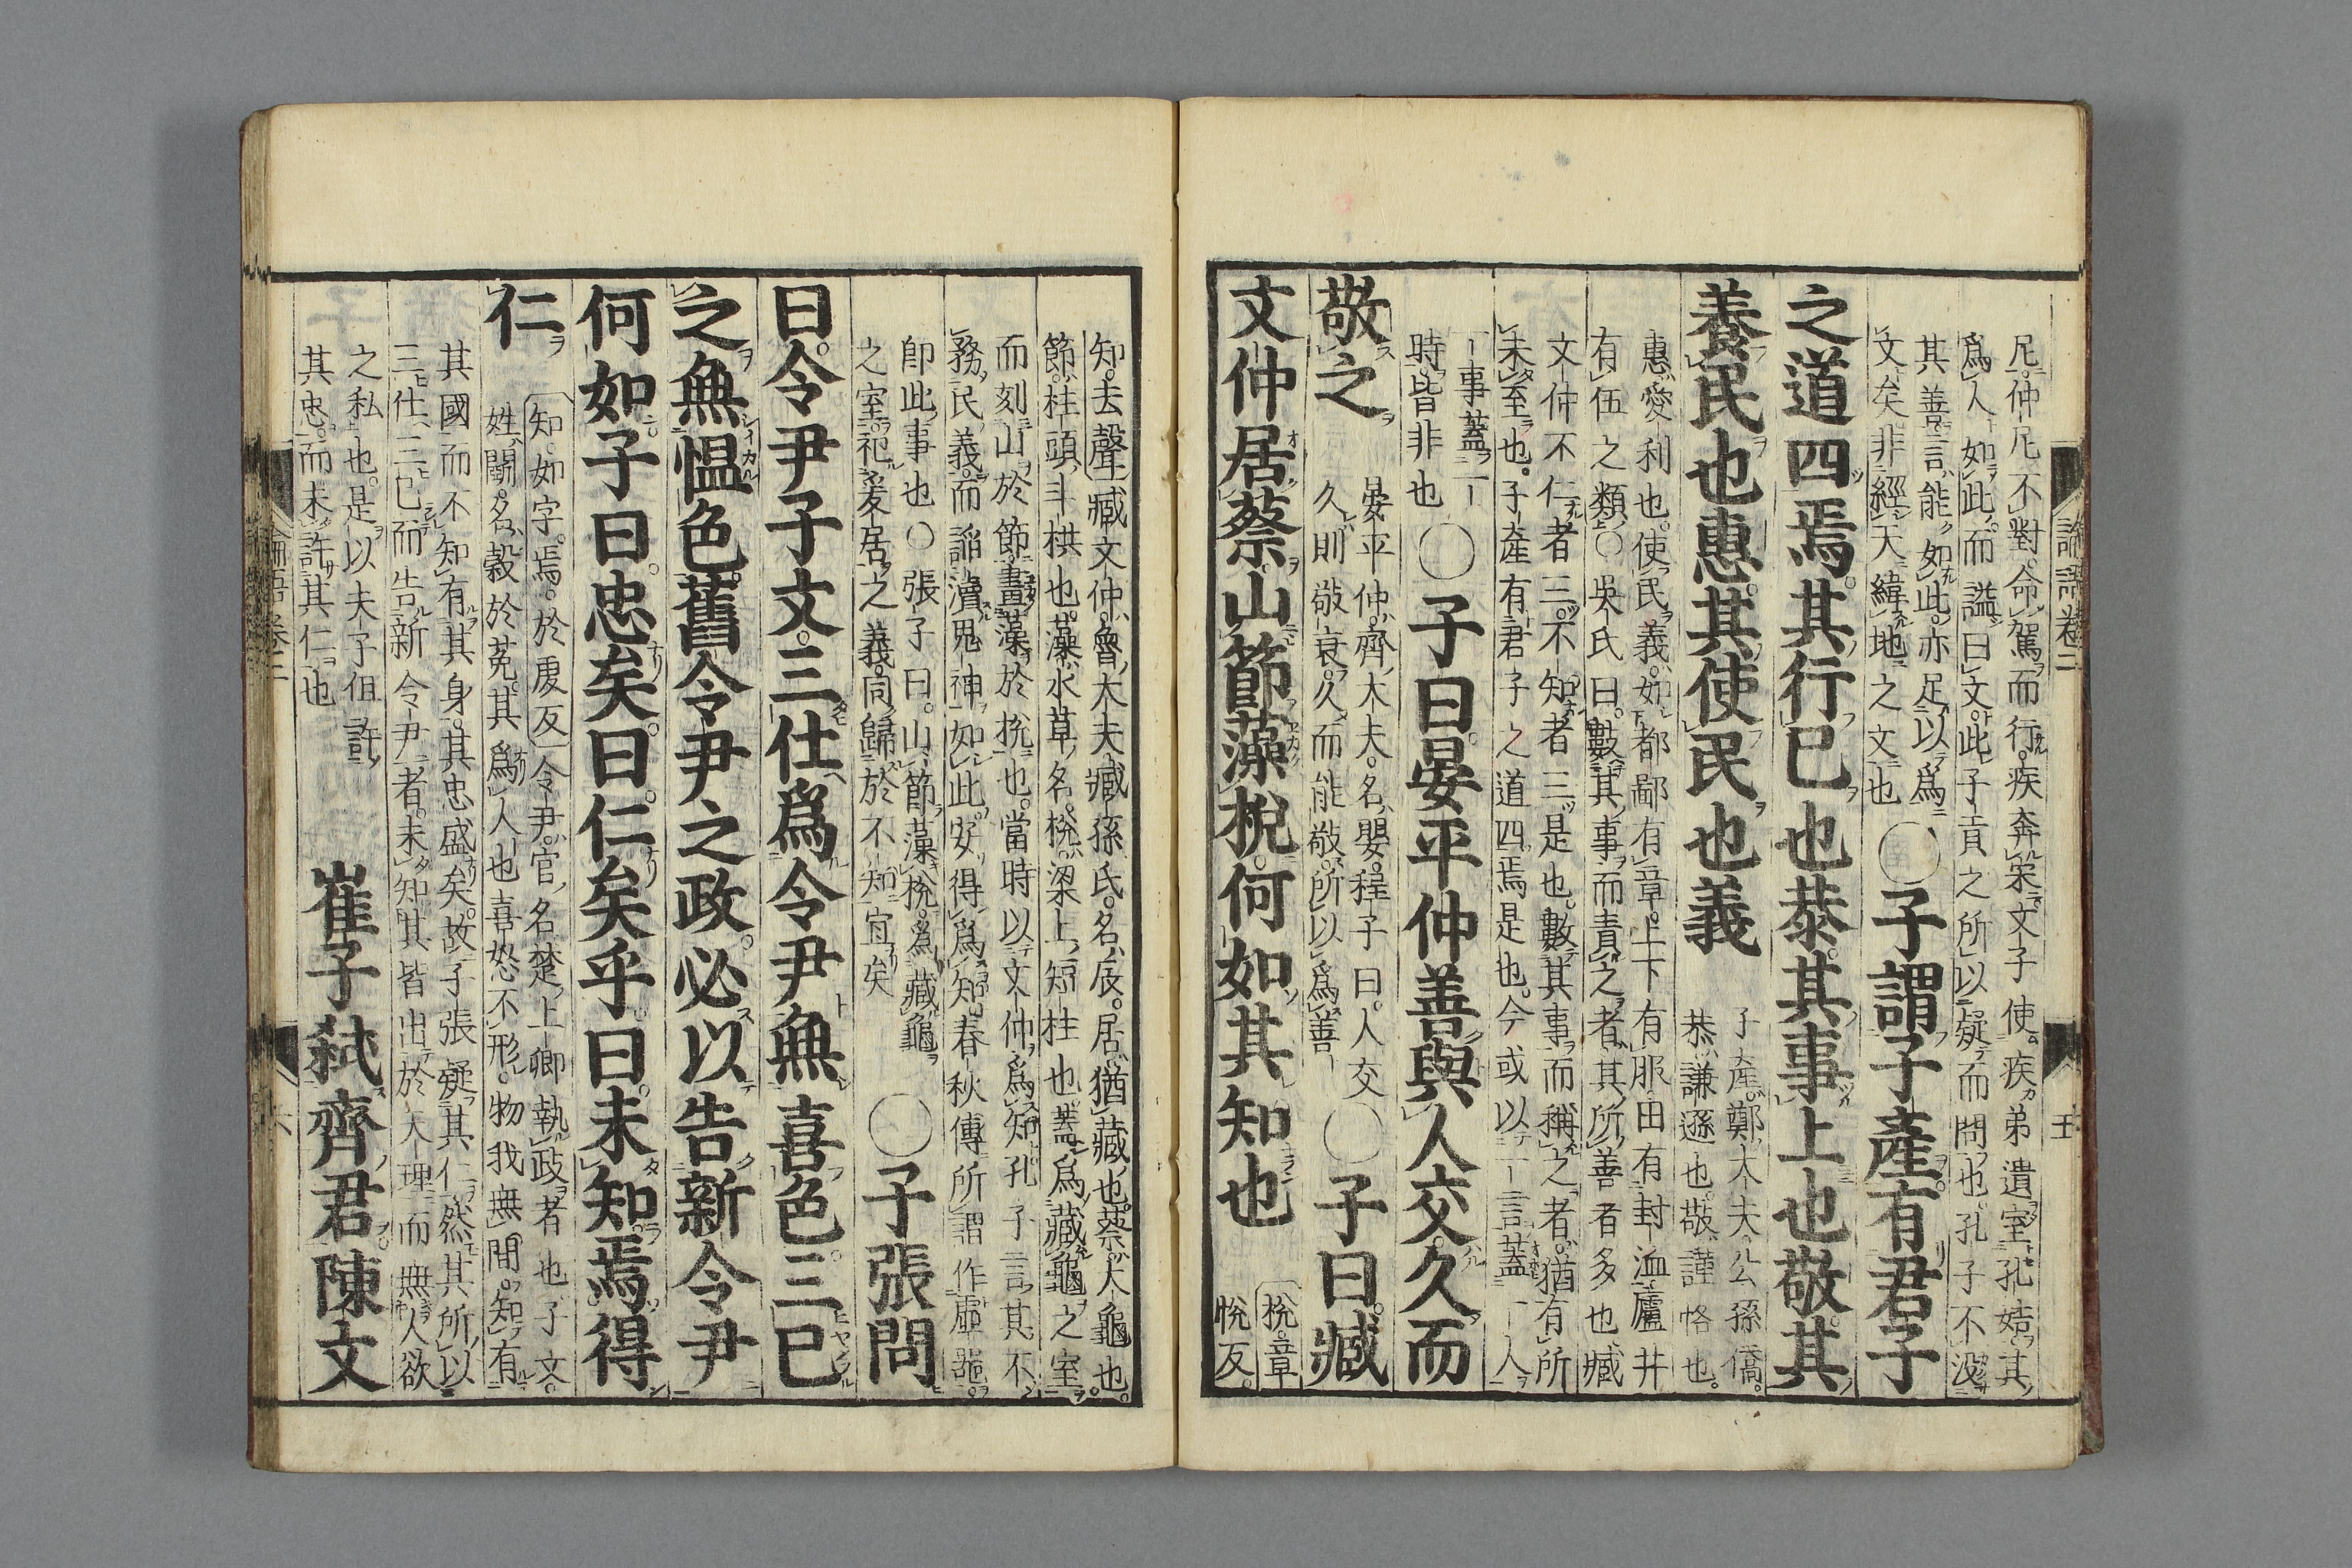 尼仲尼不對命駕而行疾奔宋文子使疾弟遺室孔姞其
爲人如此而謚曰文此子貢之所以疑而問也孔子不没
其善言能如此亦足以爲
文矣非經天緯地之文也
○子謂子產有君子
之道四焉其行己也恭其事上也敬其
養民也惠其使民也義
子產鄭大夫公孫僑
恭謙遜也敬謹恪也
惠愛利也使民義如都鄙有章上下有服田有封洫廬井
有伍之類○吳氏曰數其事而責之者其所善者多也臧
文仲不仁者三不知者三是也數其事而稱之者猶有所
未至也子產有君子之道四焉是也今或以一言蓋一人
一事蓋一
時皆非也
○子曰晏平仲善與人交久而
敬之
晏平仲齊大夫名嬰程子曰人交
久則敬衰久而能敬所以爲善
○子曰臧
文仲居蔡山節藻梲何如其知也
梲章
悅反
知去聲臧文仲魯大夫臧孫氏名辰居猶藏也蔡大龜也
節柱頭斗栱也藻水草名梲梁上短柱也蓋爲藏龜之室
而刻山於節畫藻於梲也當時以文仲爲知孔子言其不
務民義而諂瀆鬼神如此安得爲知春秋傳所謂作虛器
卽此事也○張子曰山節藻梲爲藏龜
之室祀爰居之義同歸於不知宜矣
○子張問
曰令尹子文三仕爲令尹無喜色三已
之無慍色舊令尹之政必以告新令尹
何如子曰忠矣曰仁矣乎曰未知焉得
仁
知如字焉於虔反令尹官名楚上卿執政者也子文
姓鬭名穀於菟其爲人也喜怒不形物我無間知有
其國而不知有其身其忠盛矣故子張疑其仁然其所以
三仕三已而告新令尹者未知其皆出於天理而無人欲
之私也是以夫子但許
其忠而未許其仁也
崔子弒齊君陳文
論語卷二
論語卷二